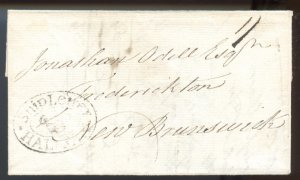 Jonathan Odell Esqr
Frederickton
New Brunswick